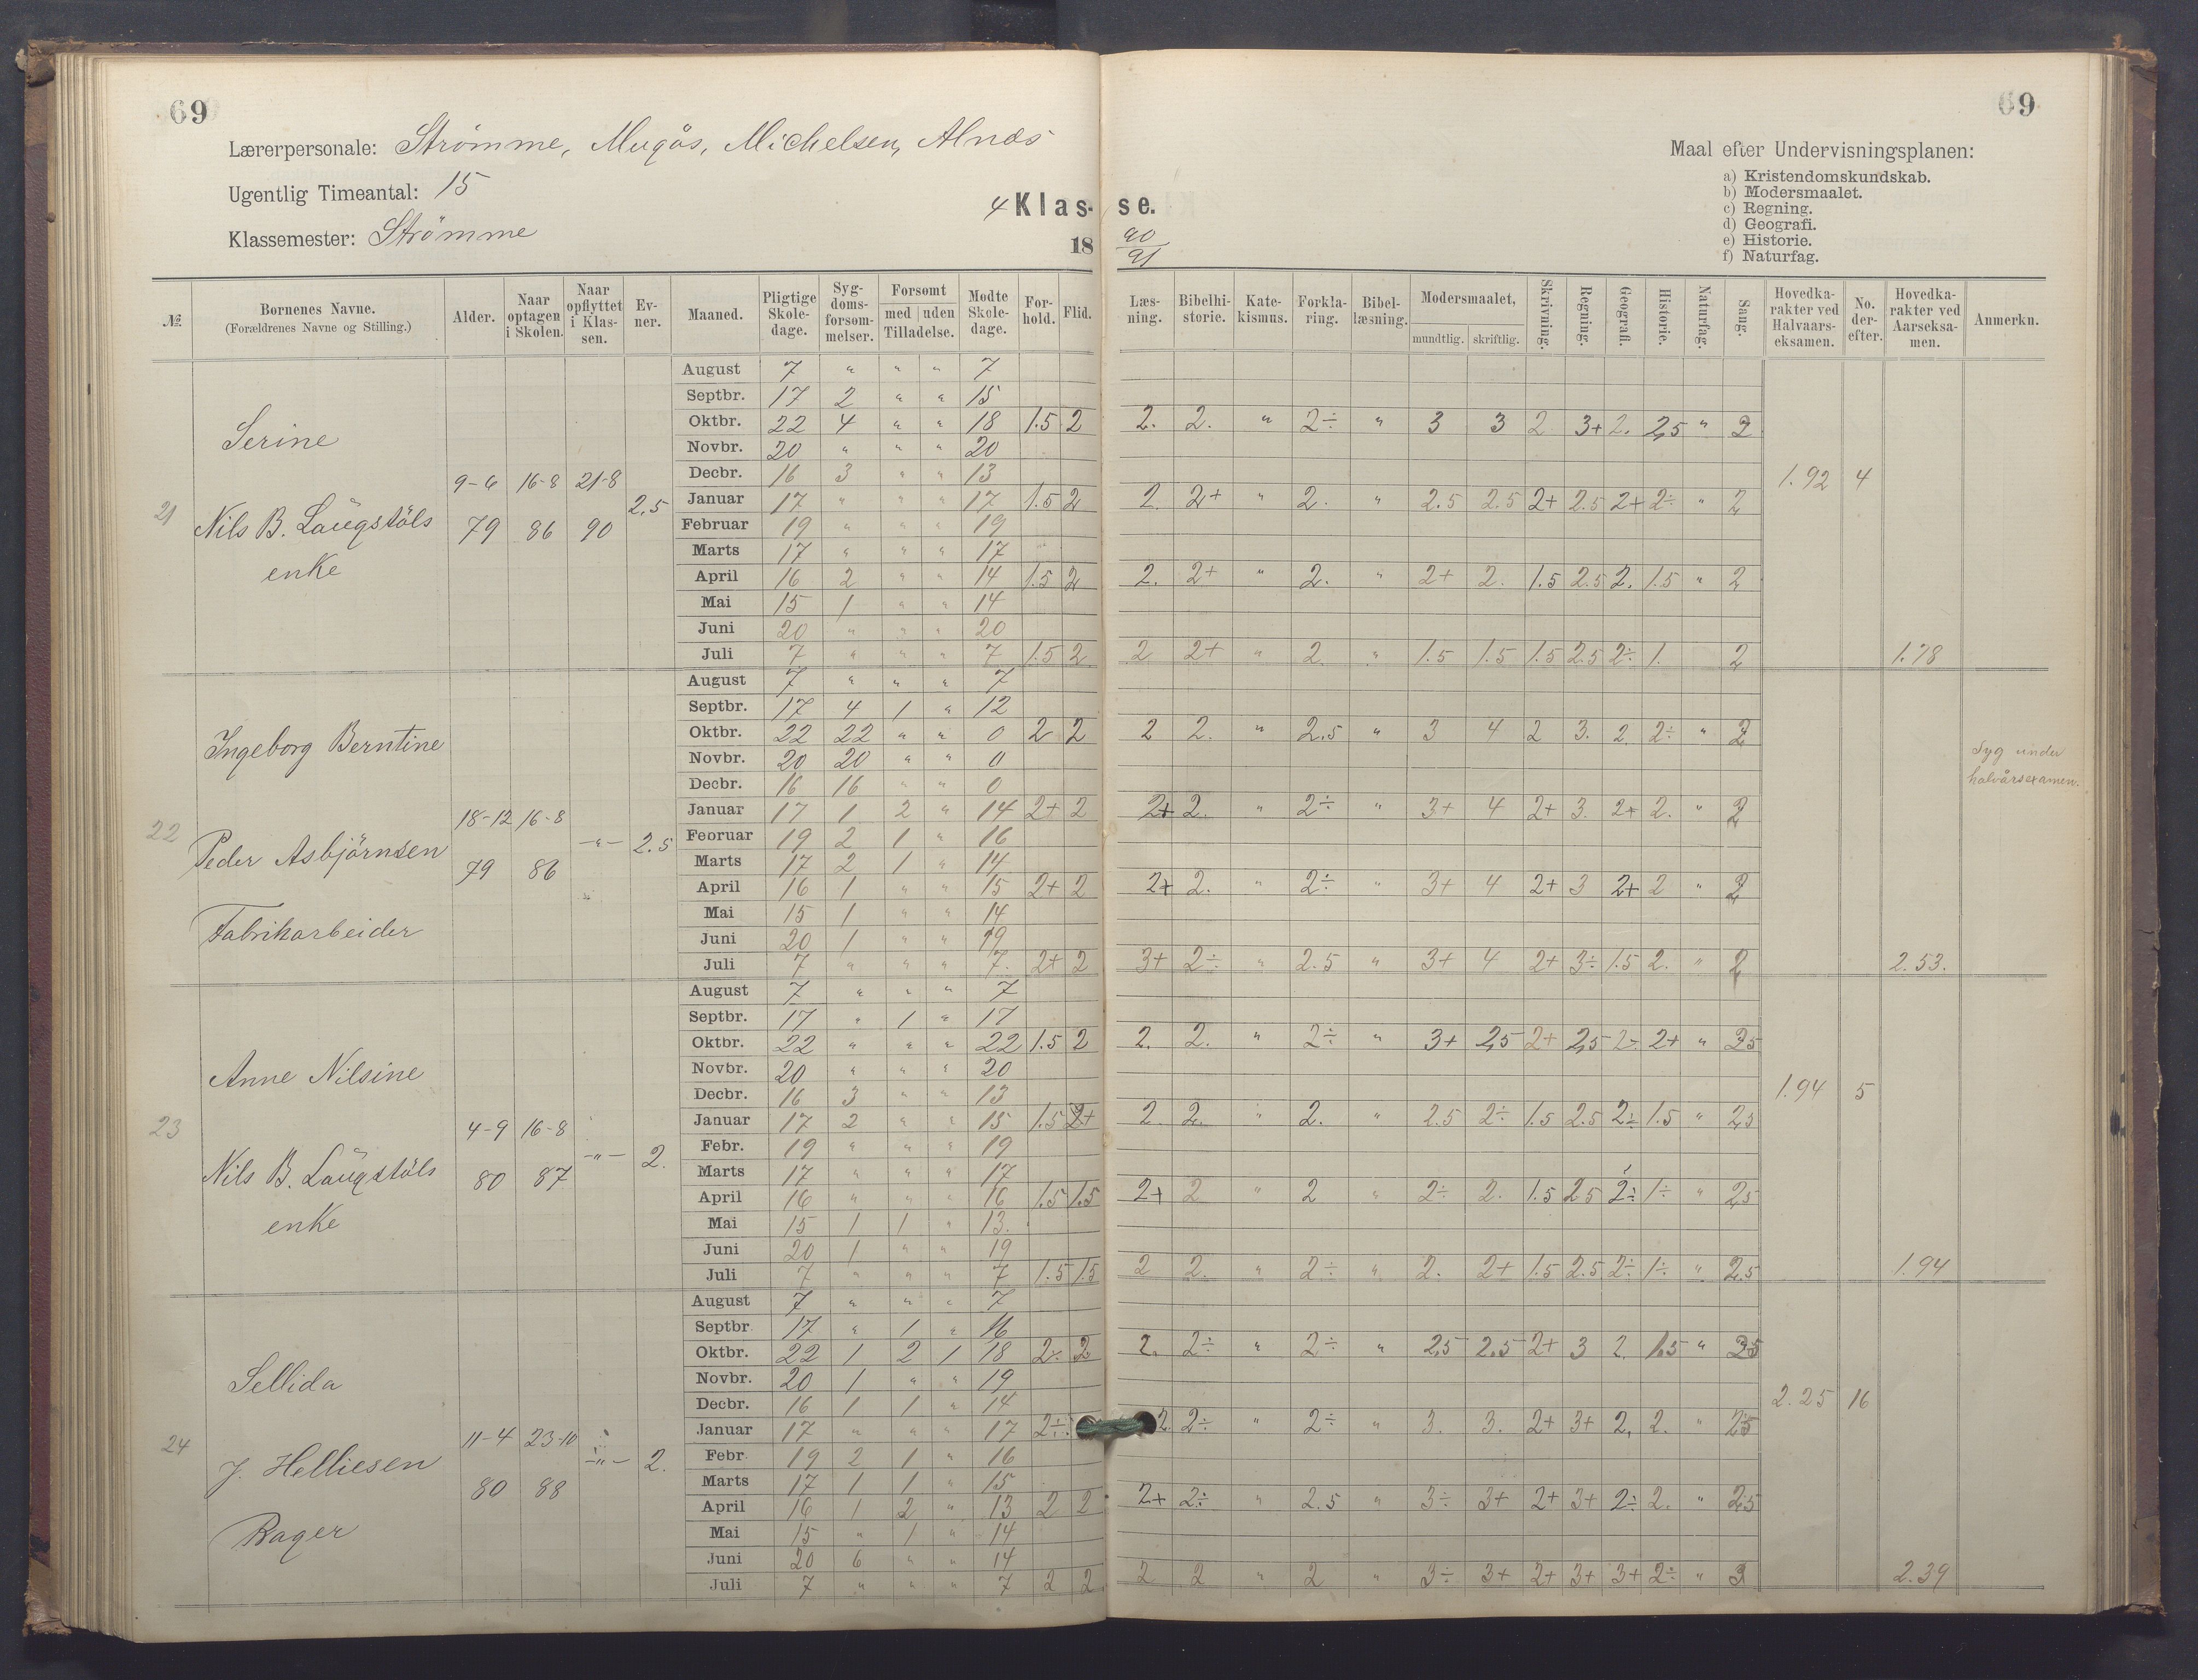 69
69
Lærerpersonale: Strømme, Mugås, Michelsen, Alnæs
Ugentlig Timeantal: 15
Klassemester: Strømme
4 Klasse.
18 90/91
Maal efter Undervisningsplanen:
a) Kristendomskundskab.
b) Modersmaalet.
c) Regning.
d) Geografi.
e) Historie.
f) Naturfag.
№ | Børnenes Navne. (Forældrenes Navne og Stilling.) | Alder. | Naar optagen i Skolen. | Naar opflyttet i Klassen. | Evner. | Maaned. | Pligtige Skoledage. | Sygdomsforsømmelser. | Forsømt med | uden Tilladelse. | Mødte Skoledage. | Forhold. | Flid. | Læsning. | Bibelhistorie. | Katekismus. | Forklaring. | Bibellæsning. | Modersmaalet, mundtlig. | skriftlig. | Skrivning. | Regning. | Geografi. | Historie. | Naturfag. | Sang. | Hovedkarakter ved Halvaarseksamen. | No. derefter. | Hovedkarakter ved Aarseksamen. | Anmerkn.
21 Serine
Nils B. Laugstöls
enke
9-6 79 | 16-8 86 | 21-8 90 | 2.5
August 7 " " " 7
Septbr. 17 2 " " 15
Oktbr. 22 4 " " 18 1.5 2 | 2. 2. " 2÷ " 3 3 2 3+ 2. 2,5 " 2
Novbr. 20 " " " 20
Decbr. 16 3 " " 13 | 1.92 4
Januar 17 " " " 17 1.5 2 | 2. 2+ " 2. " 2.5 2.5 2+ 2.5 2+ 2÷ " 2
Februar 19 " " " 19
Marts 17 " " " 17
April 16 2 " " 14 1.5 2 | 2. 2+ " 2. " 2+ 2. 1.5 2.5 2. 1.5 " 2
Mai 15 1 " " 14
Juni 20 " " " 20
Juli 7 " " " 7 1.5 2 | 2 2+ " 2. " 1.5 1.5 1.5 2.5 2÷ 1. 2 | 1.78
22 Ingeborg Berntine
Peder Asbjörnsen
Fabrikarbeider
18-12 79 | 16-8 86 | -"- | 2.5
August 7 " " " 7
Septbr. 17 4 1 " 12
Oktbr. 22 22 " " 0 2 2 | 2 2. " 2.5 " 3 4 2 3. 2. 2÷ " 2
Novbr. 20 20 " " 0 | Syg under
Decbr. 16 16 " " 0 | halvårsexamen.
Januar 17 1 2 " 14 2+ 2 | 2+ 2. " 2÷ " 3+ 4 2+ 3. 2+ 2. " 2
Feoruar 19 2 1 " 16
Marts 17 2 1 " 14
April 16 1 " " 15 2+ 2 | 2+ 2. " 2÷ " 3+ 4 2+ 3 2+ 2 " 2
Mai 15 1 " " 14
Juni 20 1 " " 19
Juli 7 " " " 7. 2+ 2 | 3+ 2÷ " 2.5 " 3+ 4 2+ 3÷ 1.5 2. " 2 | 2.53.
23 Anne Nilsine
Nils B. Laugstöls
enke
4-9 80 | 16-8 87 | -"- | 2.
August 7 " " " 7
Septbr. 17 " 1 " 17
Oktbr. 22 " " " 22 1.5 2 | 2. 2. " 2÷ " 3+ 2,5 2+ 2,5 2÷ 2+ " 2,5
Novbr. 20 " " " 20
Decbr. 16 3 " " 13 | 1.94 5
Januar 17 2 " " 15 1.5 2+ | 2. 2. " 2. " 2.5 2÷ 1.5 2.5 2÷ 1.5 " 2,5
Febr. 19 " " " 19
Marts 17 " " " 17
April 16 " " " 16 1.5 1.5 | 2+ 2 " 2 " 2÷ 2. 1.5 2 5 2÷ 1÷ " 2,5
Mai 15 1 1 " 13.
Juni 20 1 " " 19
Juli 7 " " " 7 1.5 1.5 | 2 2. " 2÷ " 2. 2+ 1.5 2.5 2÷ 1÷ " 2.5 | 1.94
24 Sellida
J. Helliesen
Bager
11-4 80 | 23-10 88 | -"- | 2.
August 7 " " " 7
Septbr. 17 " 1 " 16
Oktbr. 22 1 2 1 18 2÷ 2 | 2. 2÷ " 2÷ " 2,5 2.5 2+ 3 2. 1.5 " 2,5
Novbr. 20 1 " " 19
Decbr. 16 1 1 " 14 | 2.25 16
Januar 17 " " " 17 2÷ | 2. 2÷ " 2÷ " 3. 3. 2+ 3+ 2. 2. " 2,5
Febr. 19 2 1 " 16
Marts 17 1 1 " 15
April 16 1 2 " 13 2 2 | 2+ 2÷ " 2.5 " 3÷ 3+ 2+ 3+ 2÷ 2. " 2,5
Mai 15 " 1 " 14
Juni 20 6 " " 14
Juli 7 " " " 7 2 2 | 2 2 " 2 " 3÷ 3+ 2+ 3+ 3+ 2÷ " 3 | 2.39